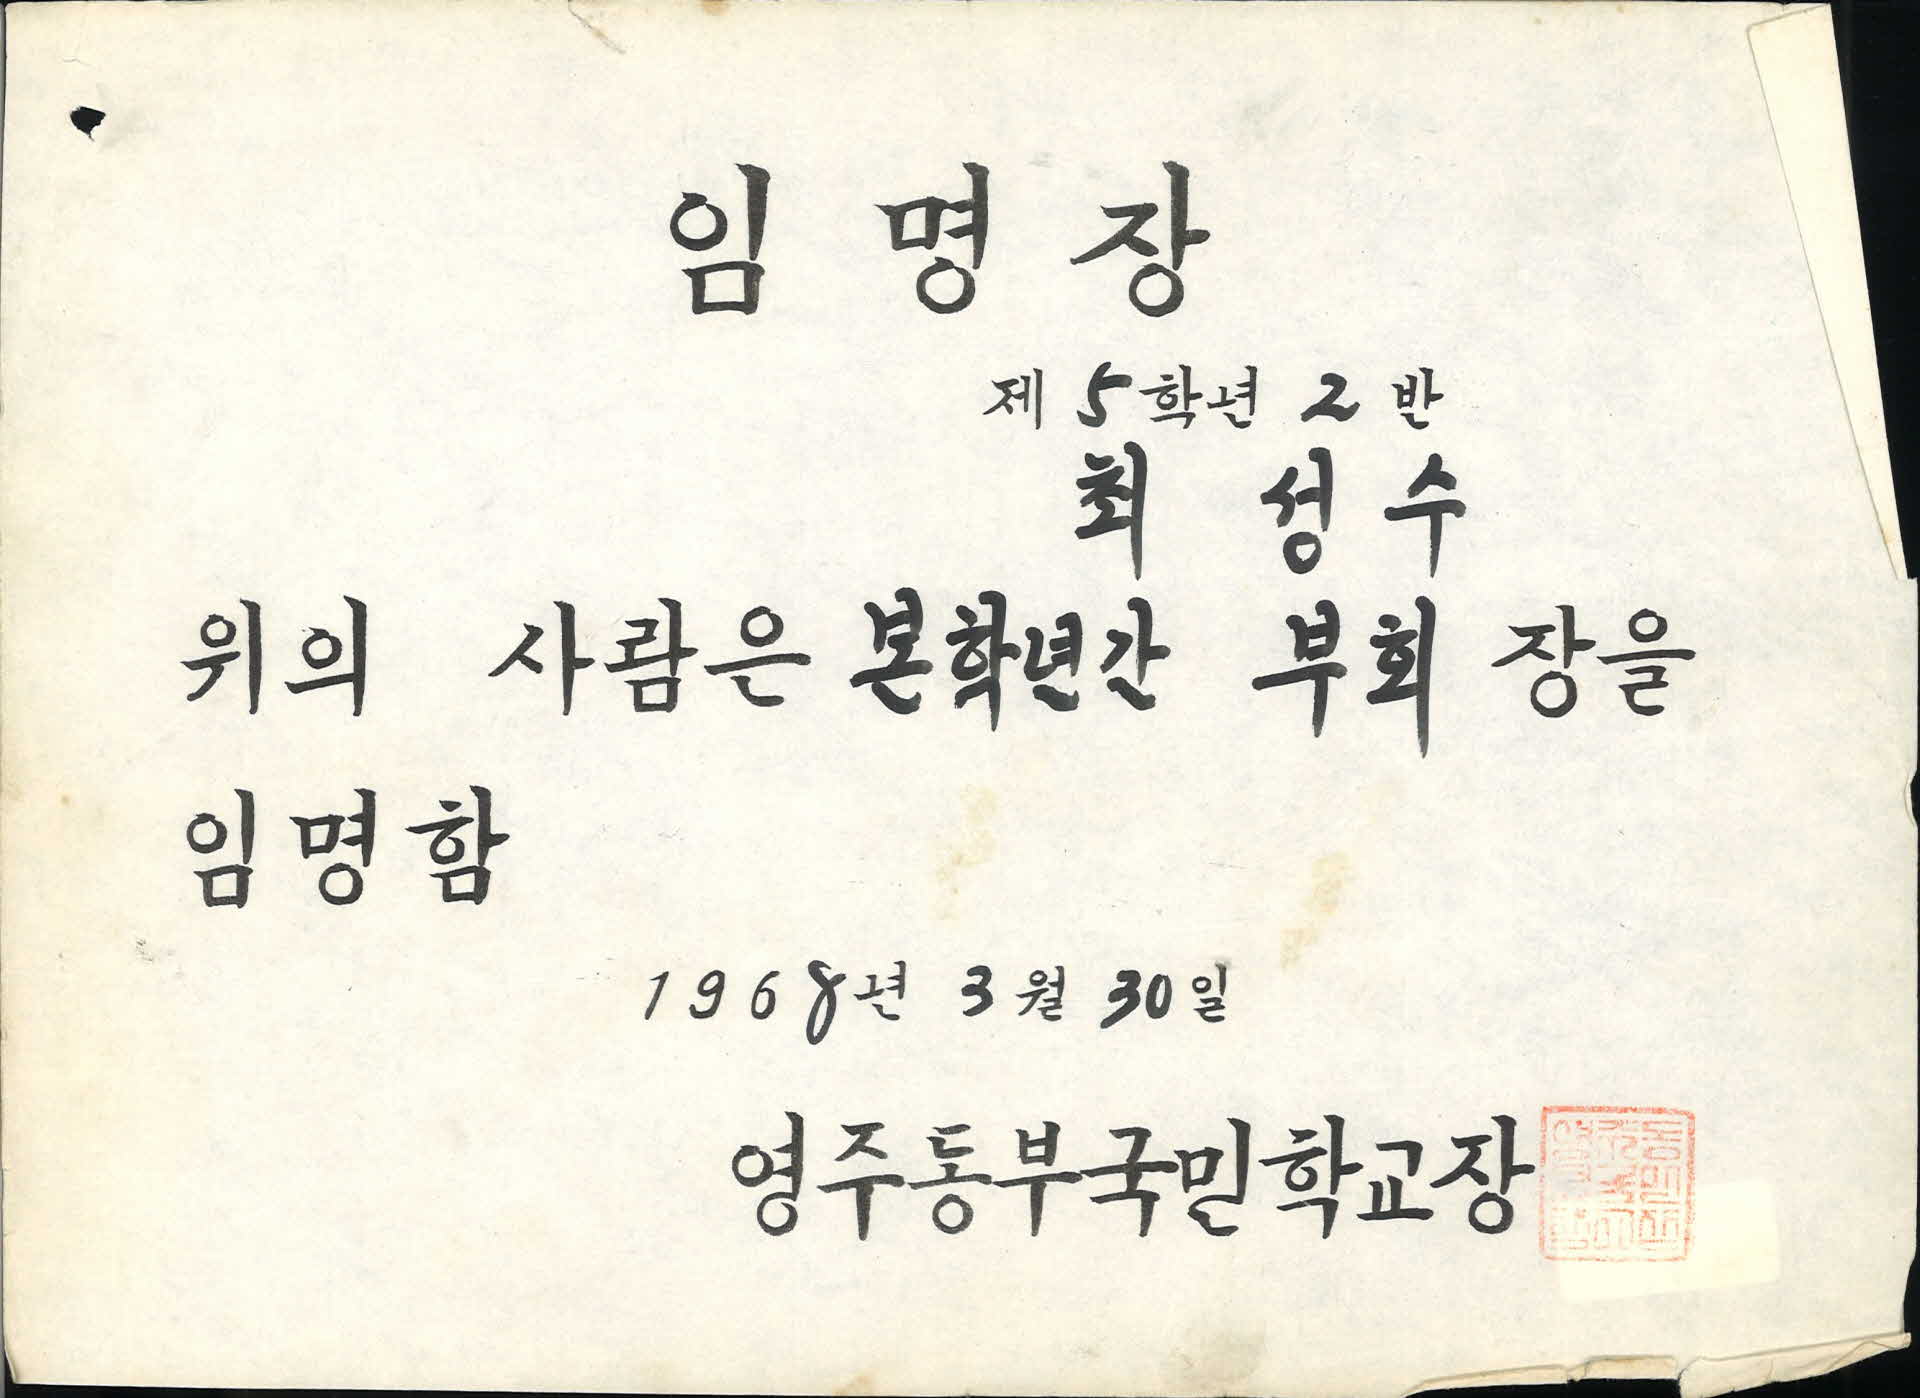 임명장
제 5학년 2반
최 성수
위의 사람은 본학년간 부회장을
임명함
1968년 3월 30일
영주동부국민학교장